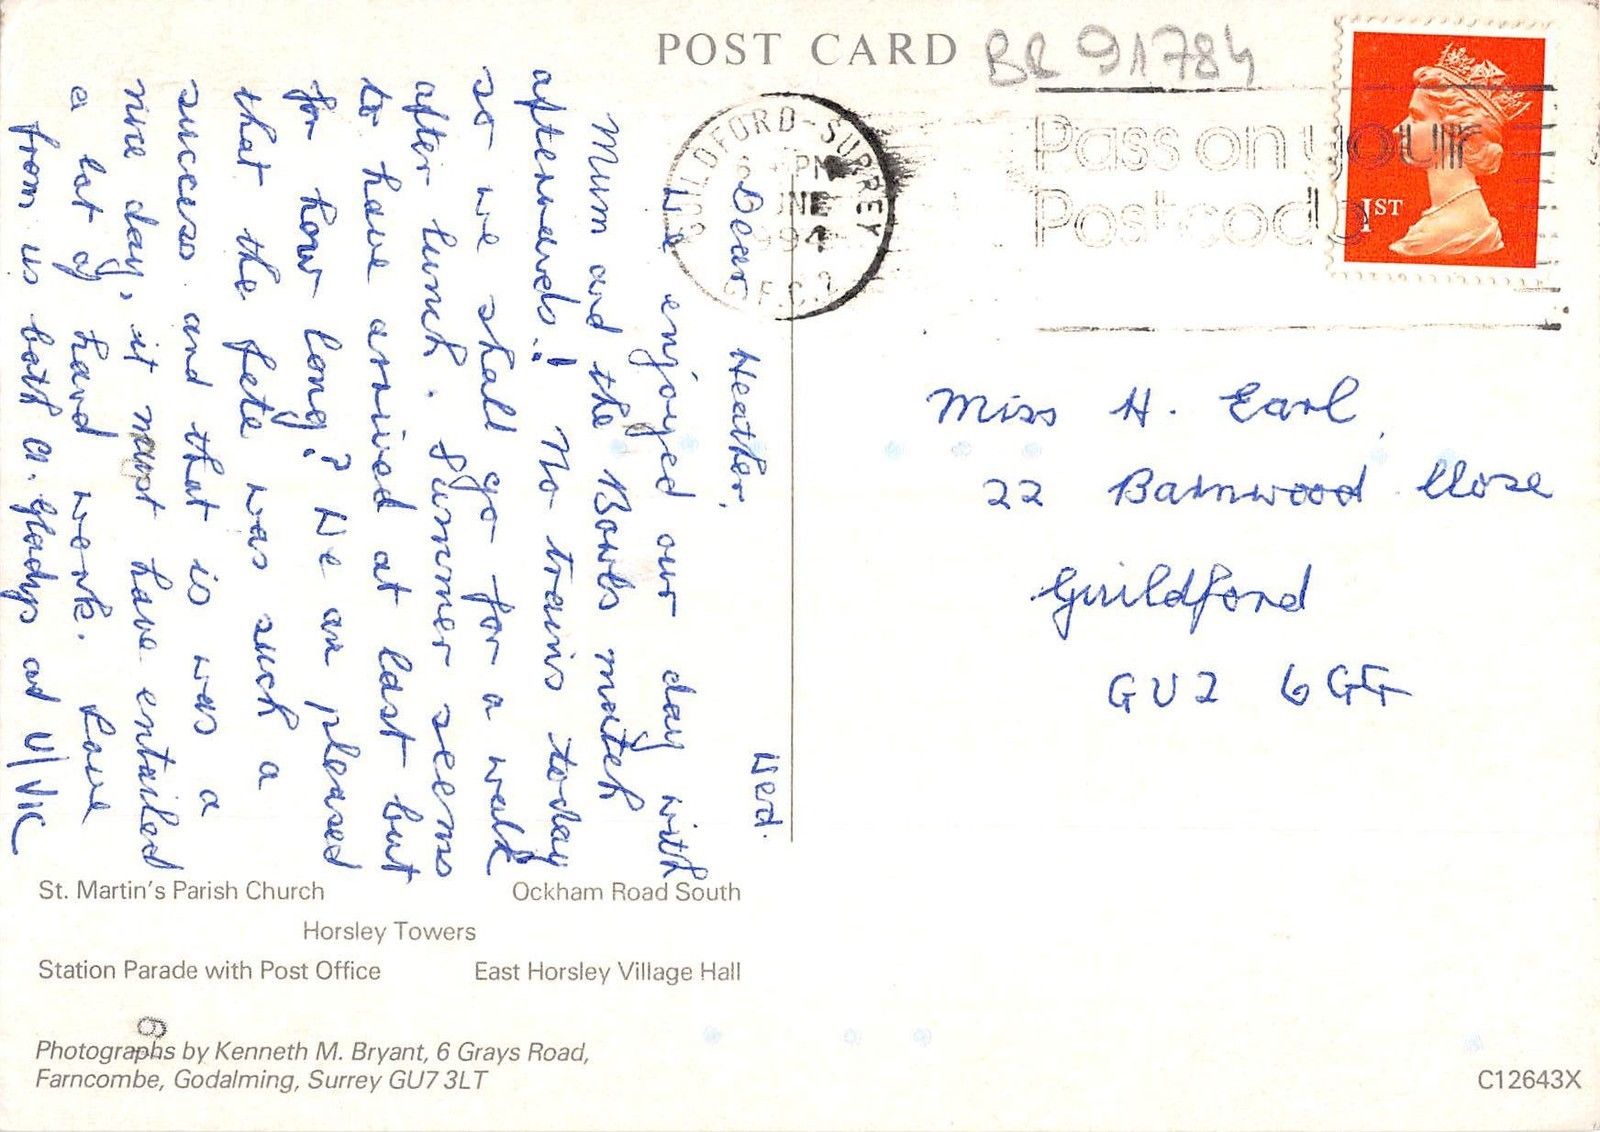 POST CARD
BR 91784
GUILDFORD-SURREY
PM
UNE
994
Pass on your
Postcode
1ST
Wed.
Dear Heather,
We enjoyed our day with
Mum and the Bowls match
afterwards! No trains today
so we shall go for a walk
after lunch. Summer seems
to have arrived at last but
for how long? We are pleased
that the fete was such a
success and that is was a
nice day, it must have entailed
a lot of hard work. Love
from us both A. Gladys and U/Vic
Miss H. Earl,
22 Barnwood Close
Guildford
GU2 6GG
St. Martin's Parish Church
Ockham Road South
Horsley Towers
Station Parade with Post Office
East Horsley Village Hall
Photographs by Kenneth M. Bryant, 6 Grays Road,
Farncombe, Godalming, Surrey GU7 3LT
C12643X